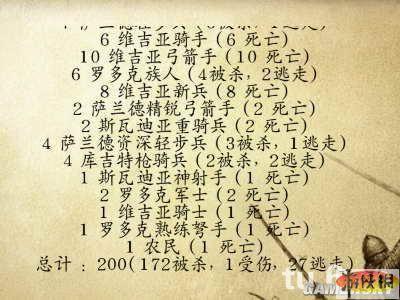 6 维吉亚骑手(6 死亡)
10 维吉亚弓箭手(10 死亡)
6 罗多克族人(4被杀,2逃走)
8 维吉亚新兵(8 死亡)
2 萨兰德精锐弓箭手(2 死亡)
2 斯瓦迪亚重骑兵(2 死亡)
4 萨兰德资深轻步兵(3被杀,1逃走)
4 库吉特枪骑兵(2被杀,2逃走)
1 斯瓦迪亚神射手(1 死亡)
2 罗多克军士(2 死亡)
1 维吉亚骑士(1 死亡)
1 罗多克熟练弩手(1 死亡)
1 农民(1 死亡)
总计 : 200(172被杀,1受伤,27逃走)
游侠網